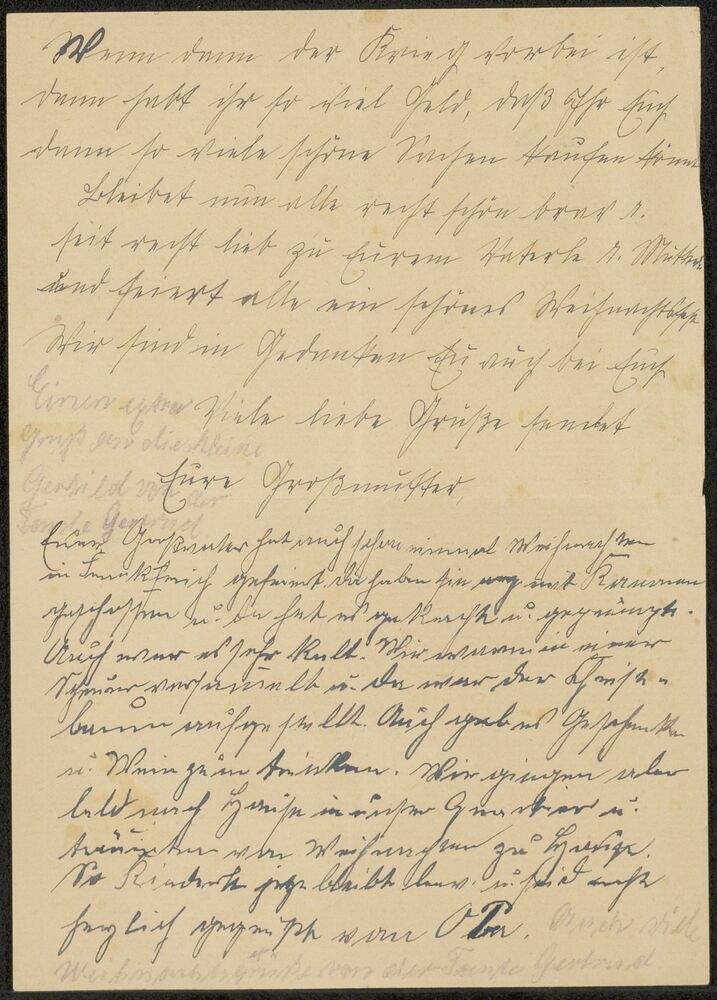 Wenn dann der Krieg vorbei ist,
dann habt ihr so viel Geld, daß Ihr Euch
dann so viele schöne Sachen kaufen könnt
Bleibet nun alle recht schön brav u.
seit recht lieb zu Eurem Vaterle u. Mutterle
und feiert alle ein schönes Weihnachtsfest
Wir sind in Gedanken auch bei Euch
Viele liebe Grüße sendet
Eure Großmutter,
Einen extra
Gruß an die kleine
Gerhild von der
Tante Gertrud
Euer Großvater hat auch schon einmal Weihnachten
in Frankreich gefeiert. Da haben sie arg mit Kanonen
geschossen u. da hat es gekracht u. gepumpt.
Auch war es sehr kalt. Wir waren in einer
Scheuer versammelt u. da war der Christ-
baum aufgestellt. Auch gab es Geschenke
u. Wein zum trinken. Wir gingen aber
bald nach Hause in unser Quartier u.
träumten von Weihnachten zu Hause.
So Kinderle jetzt bleibt brav u. seid recht
herzlich gegrüßt von Opa. Auch viele
Weihnachtsgrüße von der Tante Gertrud